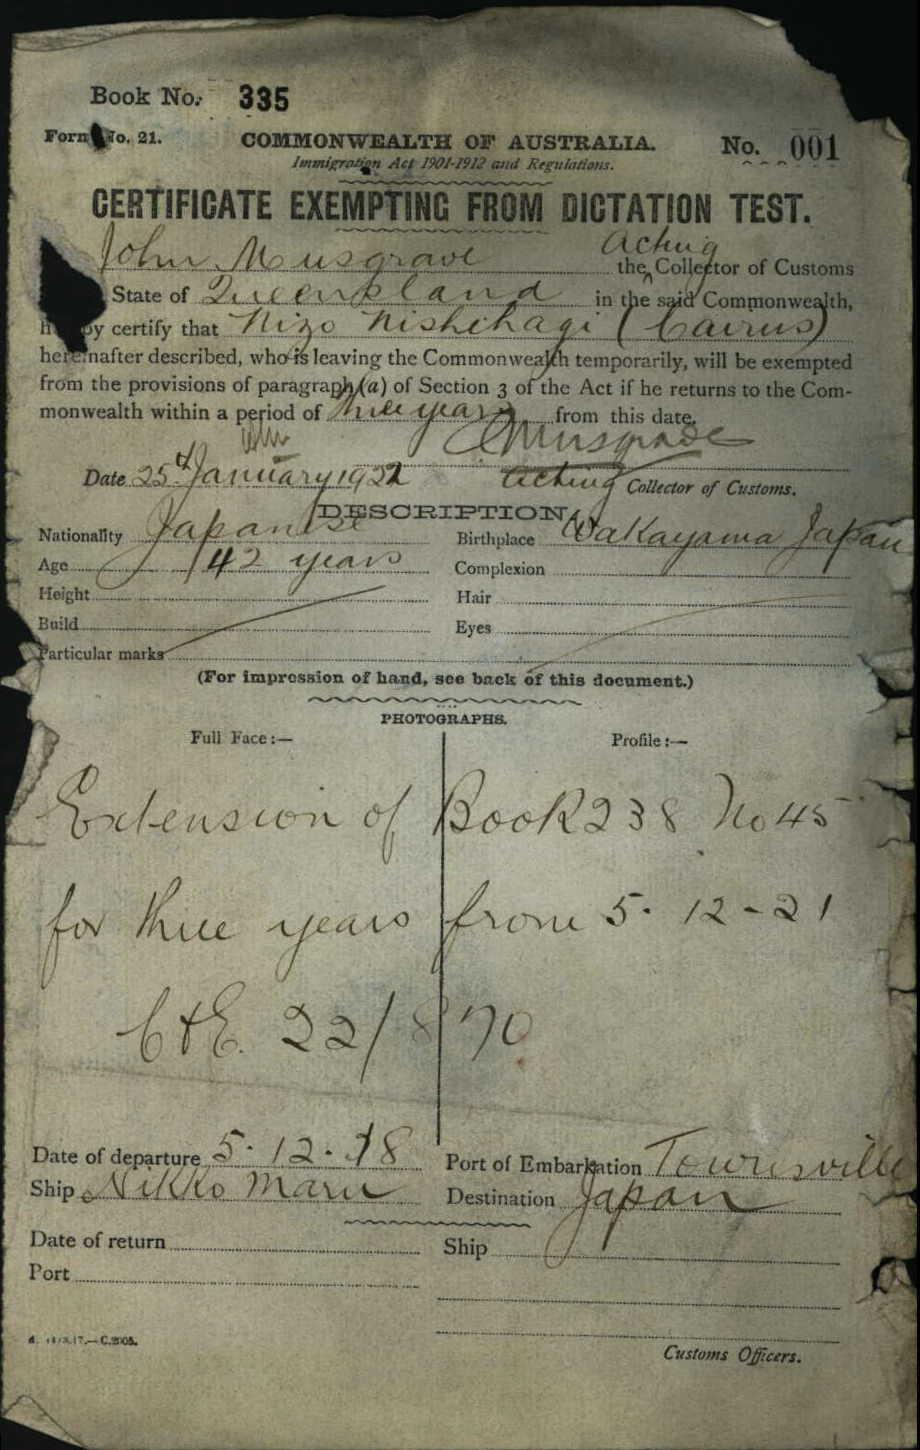 Book No. 335
Form No. 21. COMMONWEALTH OF AUSTRALIA. No. 001
Immigration Act 1901-1912 and Regulations.
CERTIFICATE EXEMPTING FROM DICTATION TEST.
John Musgrave Acting the Collector of Customs
State of Queensland in the said Commonwealth,
by certify that Nizo Nishihagi (Cairns)
hereinafter described, who is leaving the Commonwealth temporarily, will be exempted
from the provisions of paragraph (a) of Section 3 of the Act if he returns to the Com-
monwealth within a period of three years from this date.
Musgrave
Date 25th January 1922 Acting Collector of Customs.
DESCRIPTION
Nationality Japanese Birthplace Wakayama Japan
Age 42 years Complexion
Height Hair
Build Eyes
Particular marks
(For impression of hand, see back of this document.)
PHOTOGRAPHS.
Full Face:— Profile:—
Extension of Book 238 No 45
for three years from 5-12-21
C&E. 22/870
Date of departure 5-12-18 Port of Embarkation Townsville
Ship Nikko Maru Destination Japan
Date of return Ship
Port
C.2005.
Customs Officers.